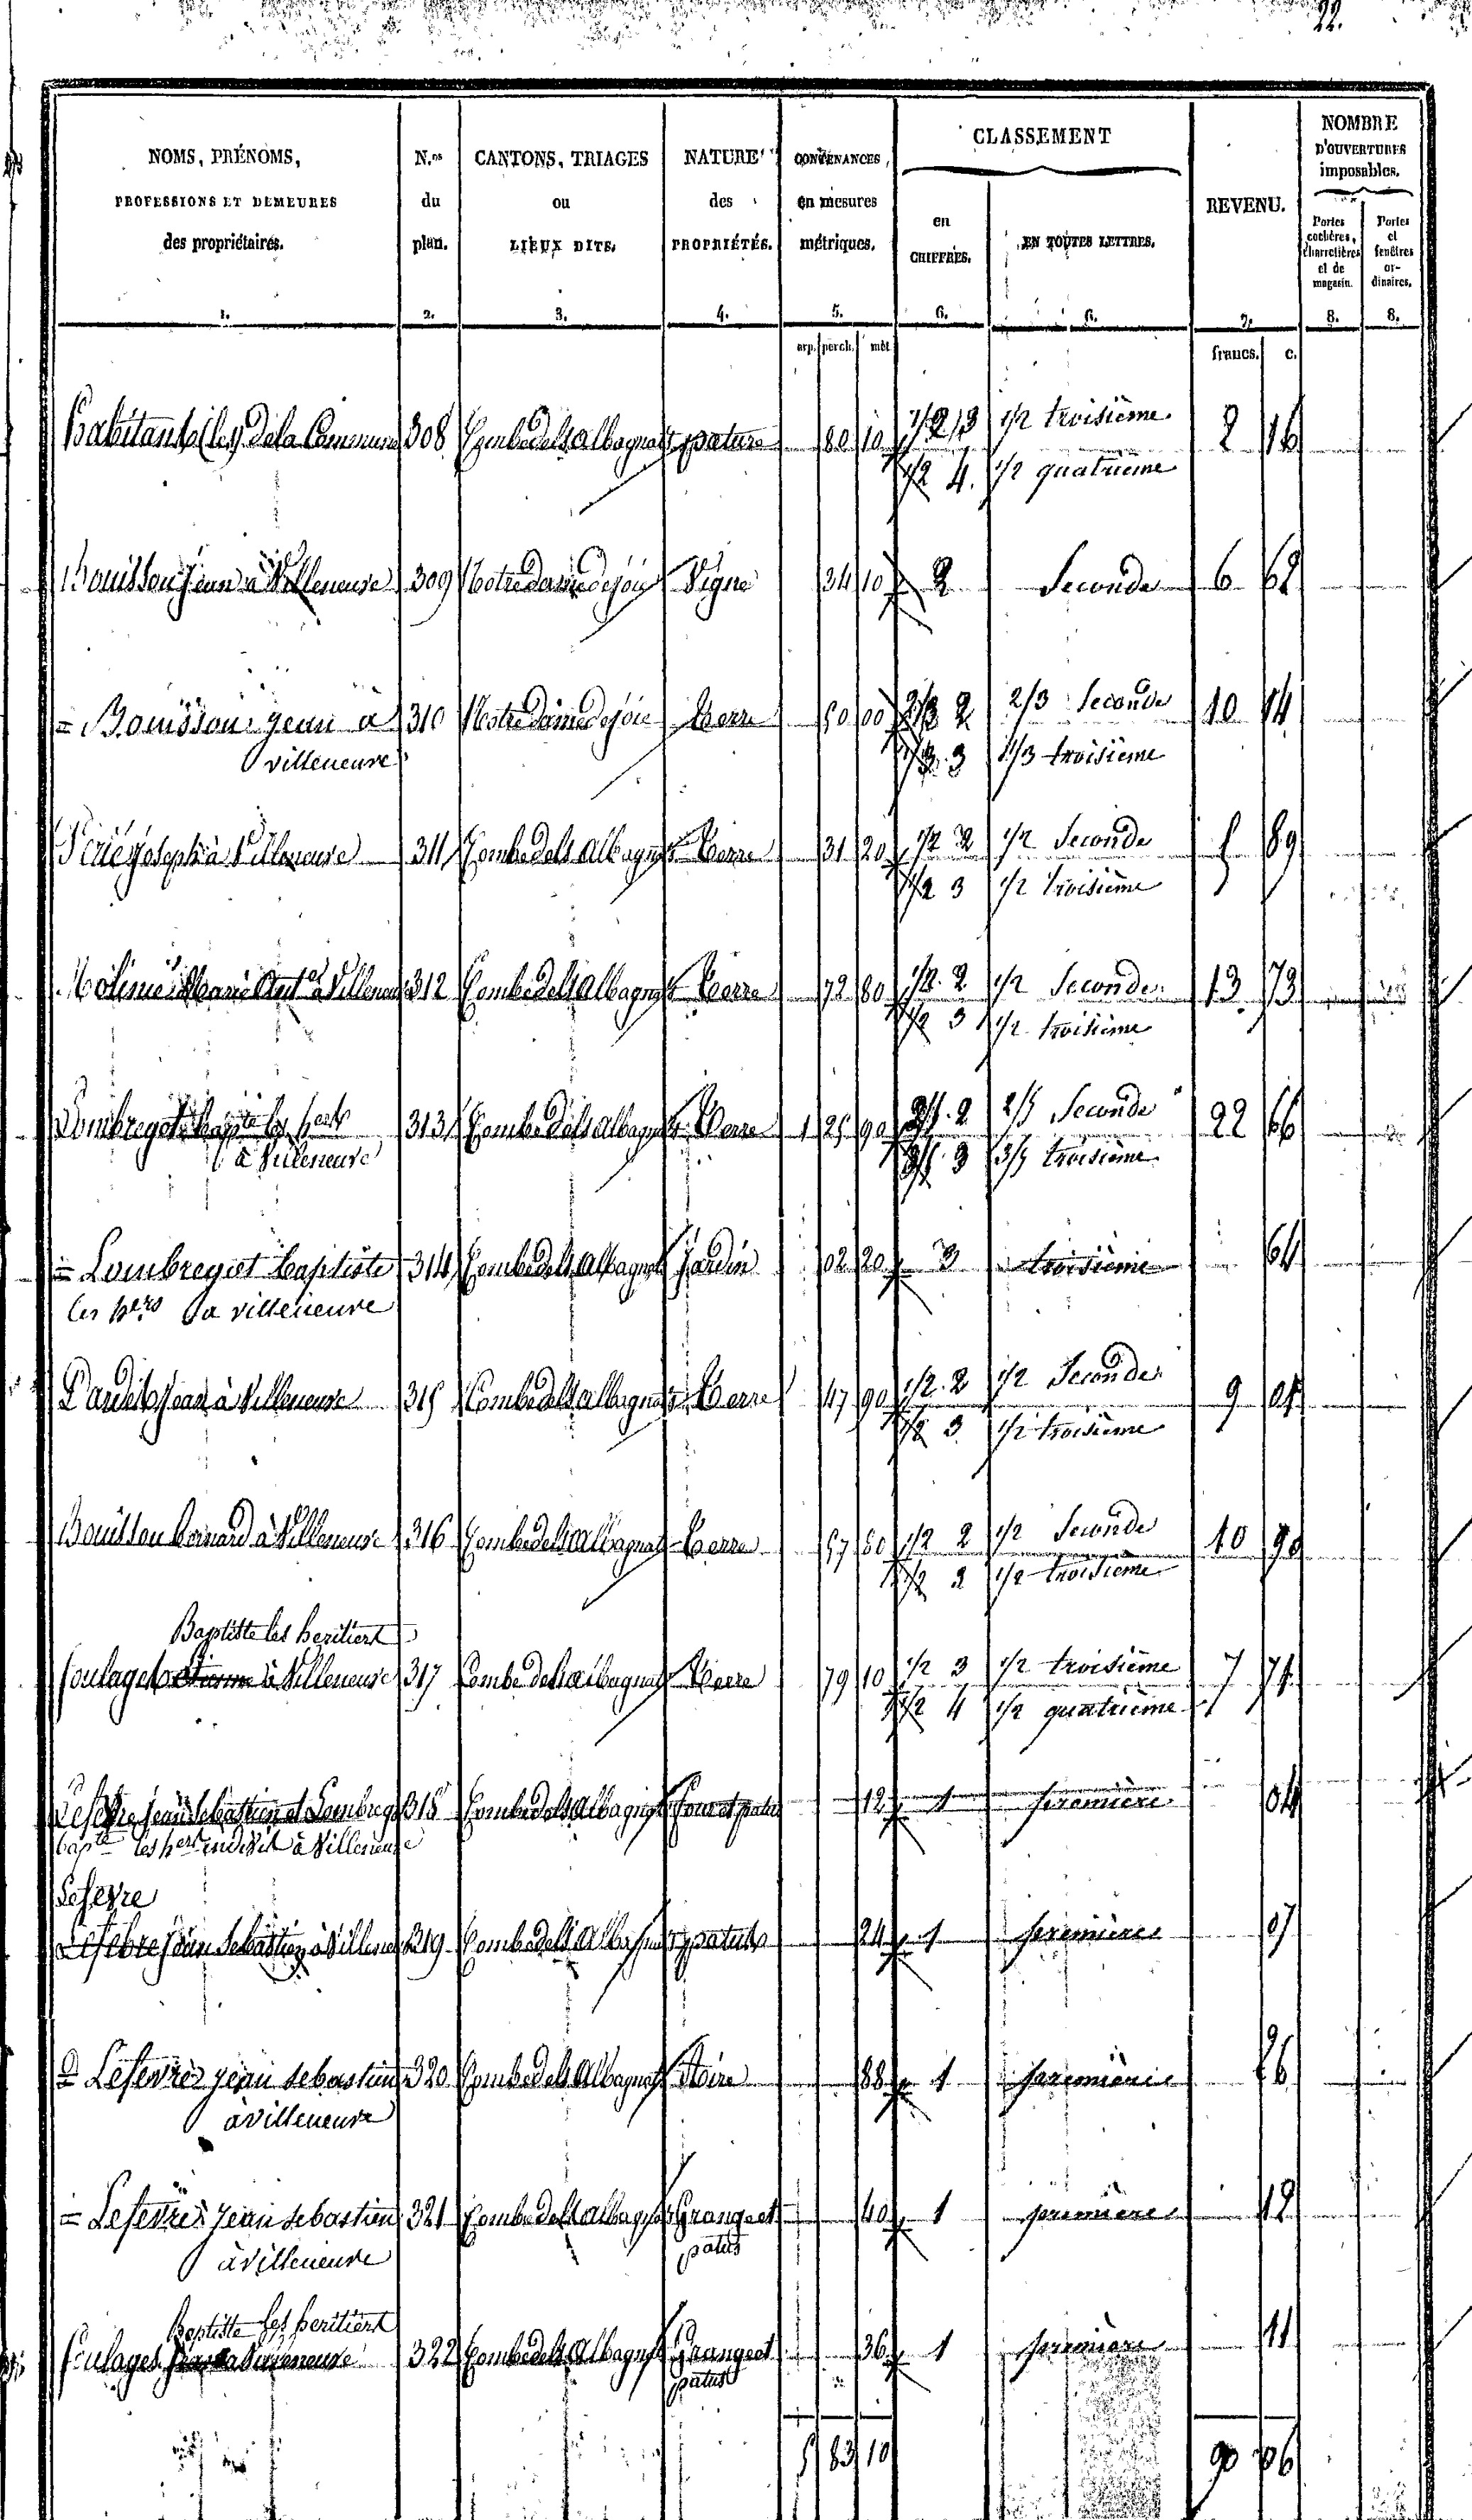 22.
NOMS, PRÉNOMS, PROFESSIONS ET DEMEURES des propriétaires. N.os du plan. CANTONS, TRIAGES ou LIEUX DITS. NATURE des PROPRIÉTÉS. CONTENANCES en mesures métriques. CLASSEMENT en CHIFFRES. EN TOUTES LETTRES. REVENU. NOMBRE D'OUVERTURES imposables. Portes cochères, charretières et de magasin. Portes et fenêtres ordinaires.
1. 2. 3. 4. 5. 6. 6. 7. 8. 8.
arp. perch. mèt. francs. c.
habitants (les) de la Commune 308 Combe dels albagnats pature 80 10 1/2 3 1/2 troisième 2 16
1/2 4. 1/2 quatrième
Bouisson Jean à Villeneuve 309 Notre dame de joie Vigne 34 10 2 Seconde 6 62
= Bouisson jean à 310 Notre dame de joie terre 50 00 2/3 2 2/3 Seconde 10 14
villeneuve 1/3 3 1/3 troisième
joseph à Villeneuve 311 Combe dels albagnats terre 31 20 1/2 2 1/2 Seconde 5 89
1/2 3 1/2 troisième
Molinié à Villeneuve 312 Combe dels albagnats terre 72 80 1/2 2 1/2 Seconde 13 73
1/2 3 1/2 troisième
Lombreyot bapte les hers 313 Combe dels albagnats terre 1 25 90 2/5 2 2/5 Seconde 22 66
à Villeneuve 3/5 3 3/5 troisième
= Lombreyot baptiste 314 Combe dels albagnats jardin 02 20 3 troisième 64
les hers à villeneuve
Jean à Villeneuve 315 Combe dels albagnats terre 47 90 1/2 2 1/2 Seconde 9 04
1/2 3 1/2 troisième
Bouisson bernard à Villeneuve 316 Combe dels albagnats terre 57 60 1/2 2 1/2 Seconde 10 90
1/2 3 1/2 troisième
Baptiste les heritiers
Soulages à Villeneuve 317 Combe dels albagnats terre 79 10 1/2 3 1/2 troisième 7 74
1/2 4 1/2 quatrième
Lefebre jean Sebastien et Lombreyot 318 Combe dels albagnats four et patus 12 1 première 04
bapte les hers indivis à Villeneuve
Lefevre
Lefebre jean Sebastien à Villeneuve 319 Combe dels albagnats patus 24 1 première 07
= Lefevre jean sebastien 320 Combe dels albagnats Aire 88 1 première 26
à villeneuve
= Lefevre jean sebastien 321 Combe dels albagnats Grange et 40 1 première 12
à villeneuve patus
Baptiste les heritiers
Soulages à Villeneuve 322 Combe dels albagnats Grange et 36 1 première 11
patus
5 83 10 90 06